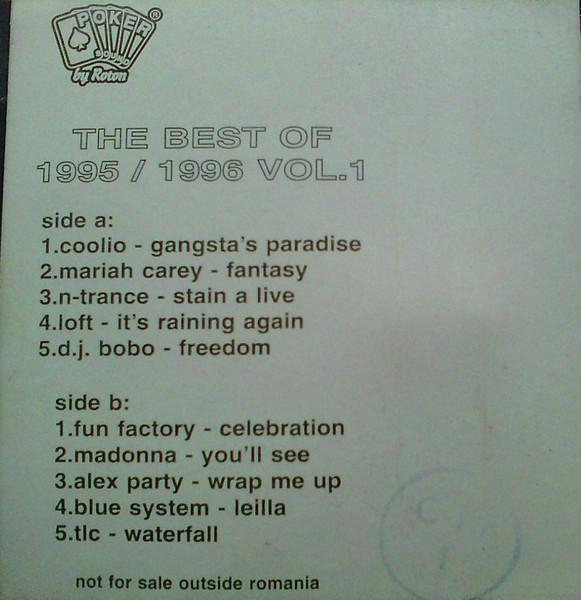 POKER®
SOUND
by Roton
THE BEST OF
1995 / 1996 VOL.1
side a:
1.coolio - gangsta's paradise
2.mariah carey - fantasy
3.n-trance - stain a live
4.loft - it's raining again
5.d.j. bobo - freedom
side b:
1.fun factory - celebration
2.madonna - you'll see
3.alex party - wrap me up
4.blue system - leilla
5.tlc - waterfall
not for sale outside romania